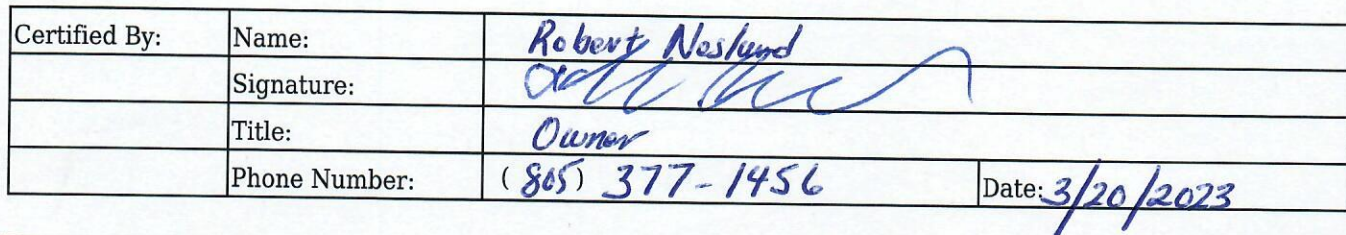 Certified By: Name: Robert Neslund
Signature:
Title: Owner
Phone Number: (805) 377-1456 Date: 3/20/2023